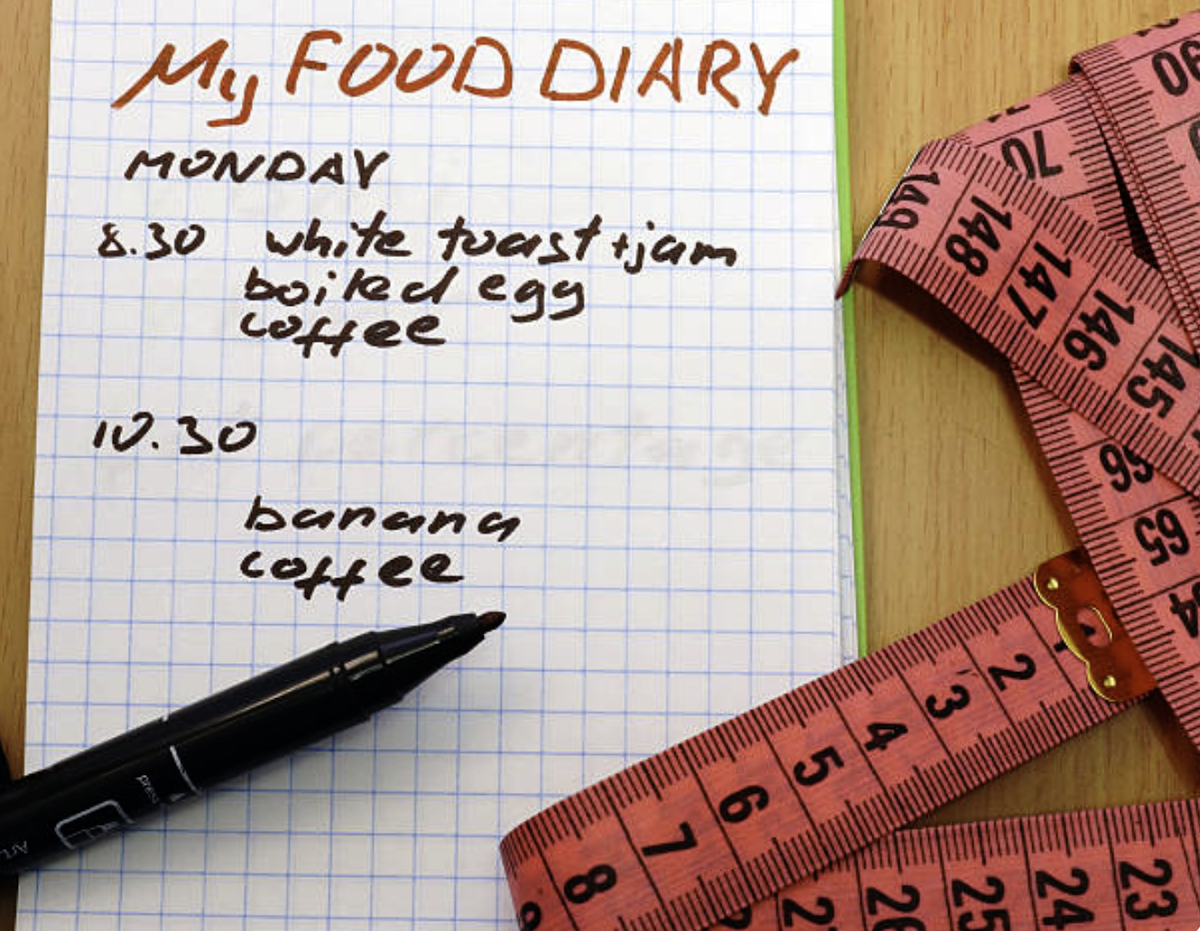 My FOOD DIARY
MONDAY
8.30 white toast +jam
boiled egg
coffee
10.30
banana
coffee
press
90
70
149
148
147
146
145
66
65
2
3
4
5
6
7
8
26
25
24
23